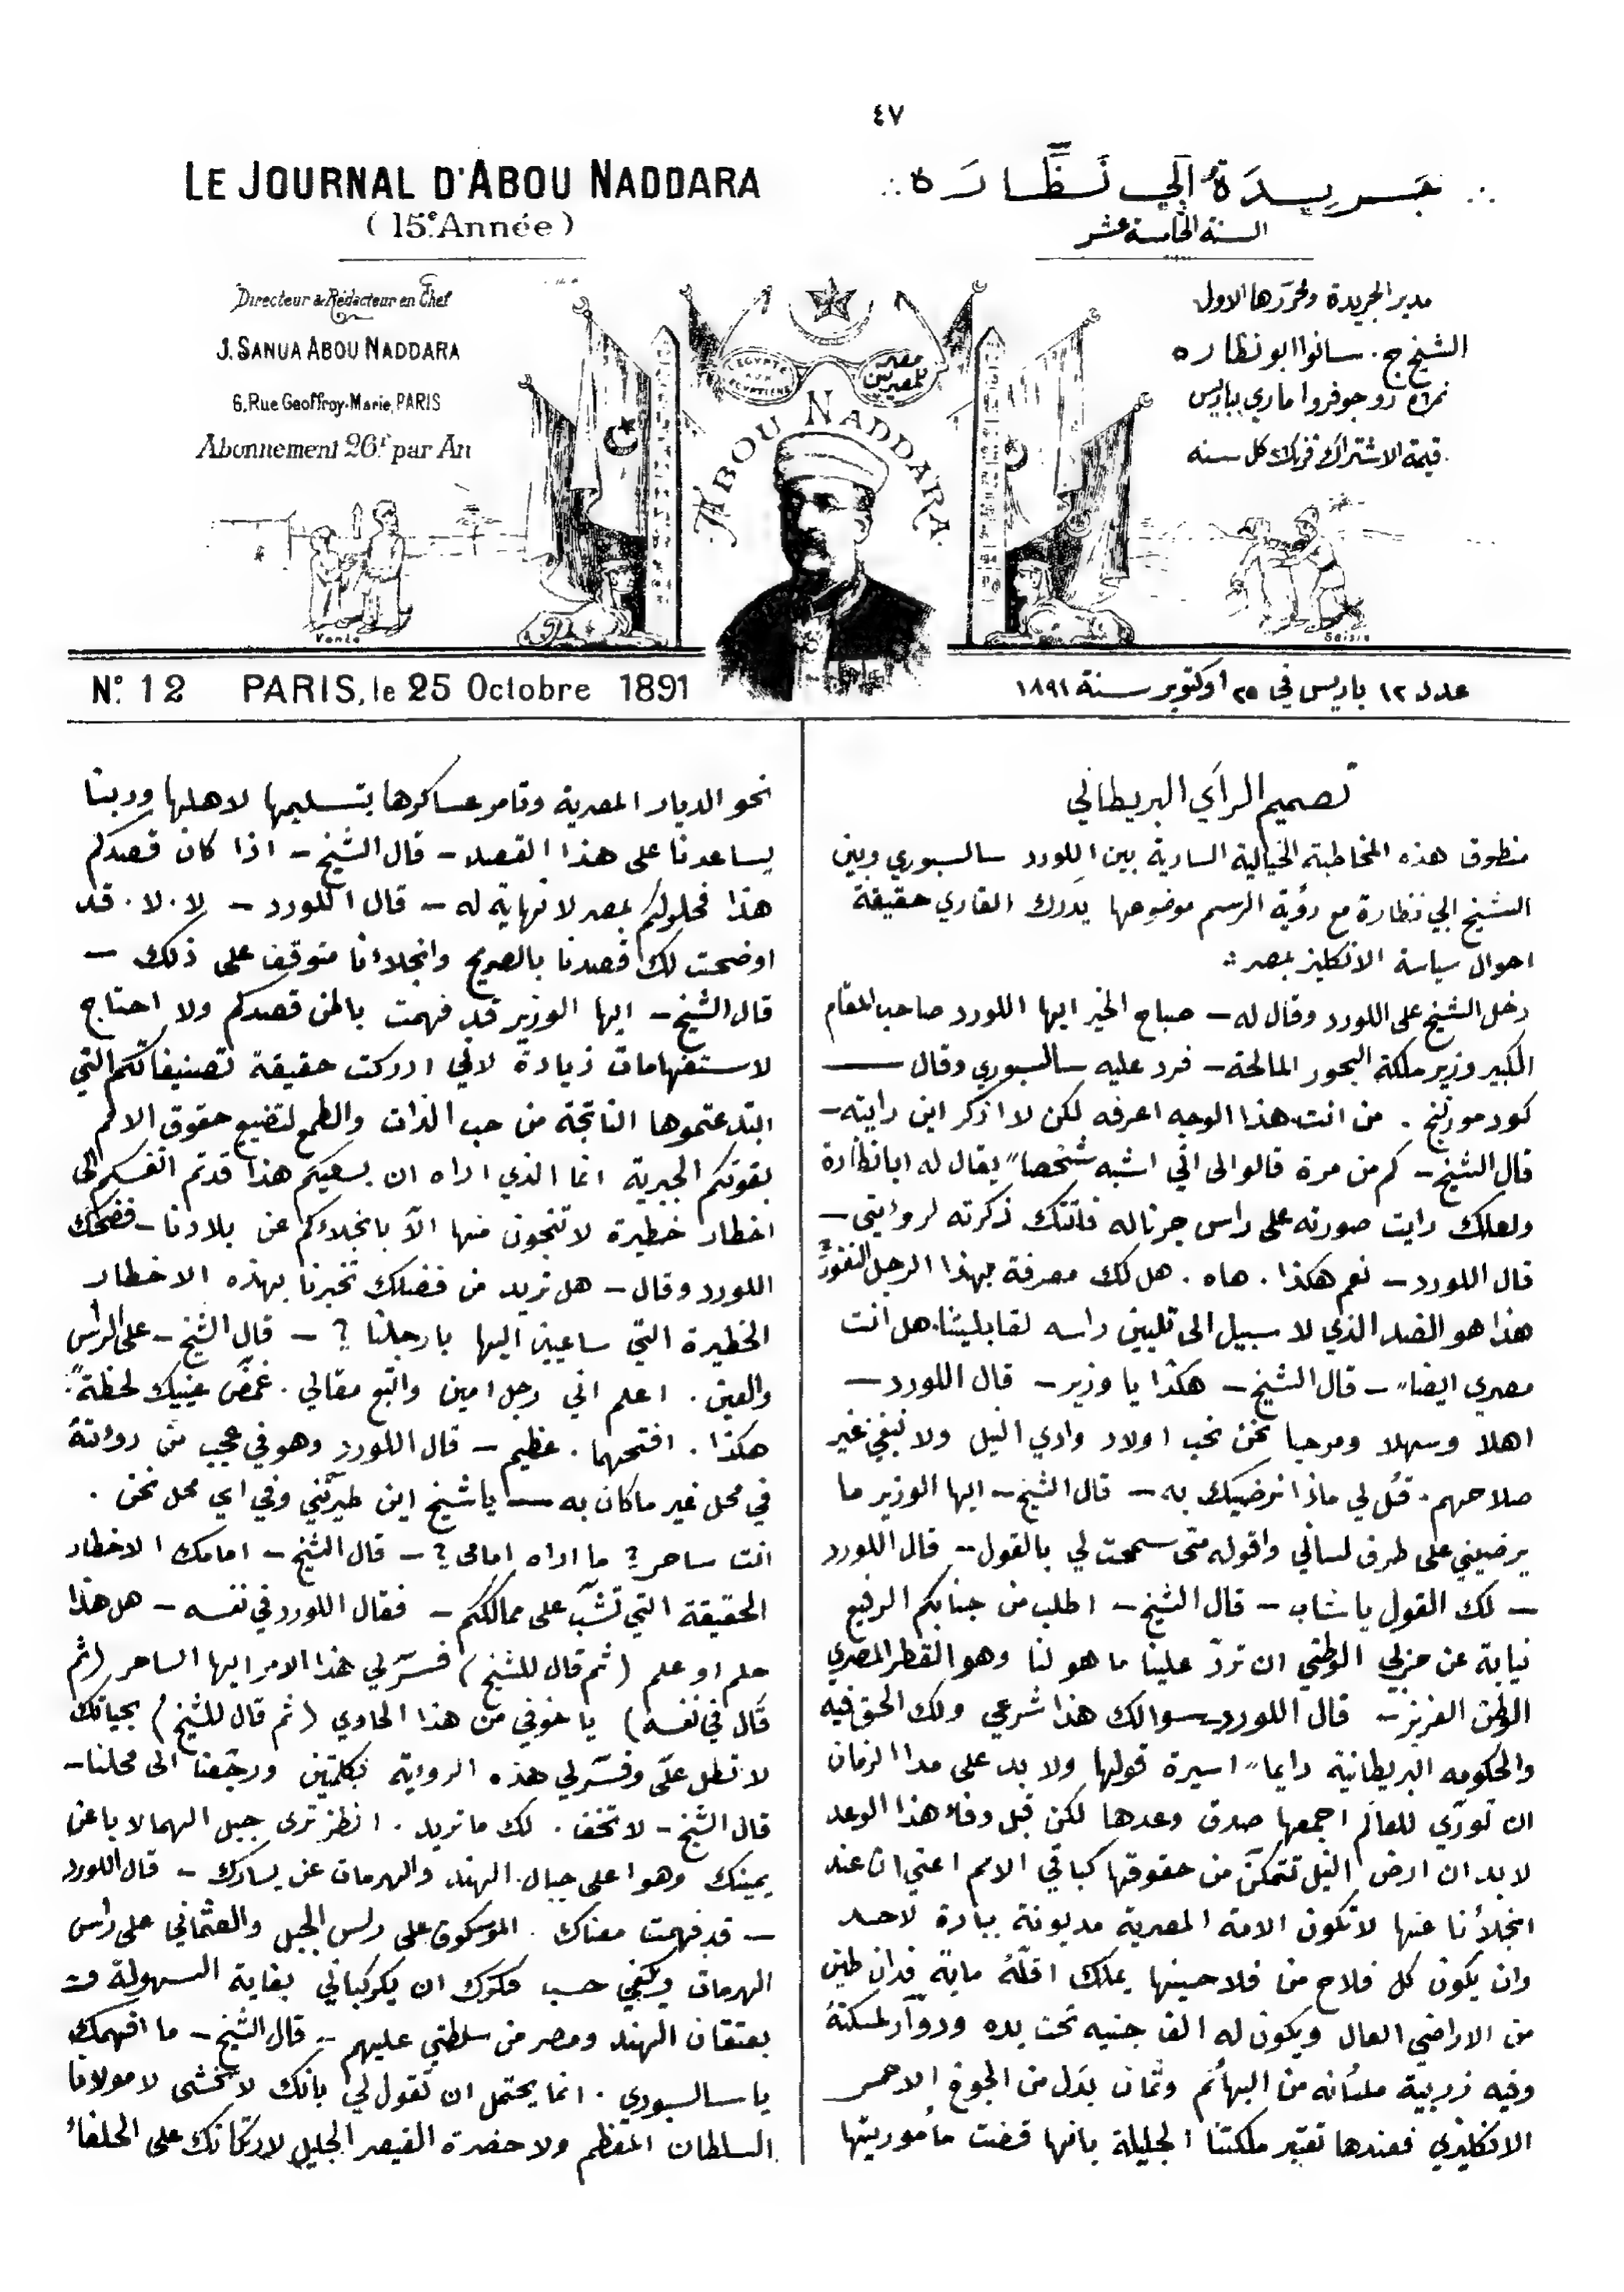 ٤٧
LE JOURNAL D'ABOU NADDARA
(15e Année)
Directeur & Rédacteur en Chef
J. SANUA ABOU NADDARA
6, Rue Geoffroy-Marie, PARIS
Abonnement 26f par An
∴ جَريدَة اَبي نَظَّارَه ∴
السنة الخامسة عشر
مدير الجريدة ومحرّرها الاول
الشيخ ج. سانوا ابو نظاره
نمرة ٦ رو جوفروا ماري بباريس
قيمة الاشتراك فرنك كل سنه
EGYPTE AUX EGYPTIENS
مصر للمصريين
ABOU NADDARA
Vente
Saisie
No. 12 PARIS, le 25 Octobre 1891
عدد ١٢ باريس في ٢٥ اوكتوبر سنة ١٨٩١
تصميم الرأي البريطاني
منطوق هذه المخاطبة الخيالية السارية بين اللورد سالسبوري وبين
الشيخ ابي نظارة مع رؤية الرسم موضوعها يدرك القاري حقيقة
احوال سياسة الانكليز بمصر ∴
دخل الشيخ على اللورد وقال له – صباح الخير ايها اللورد صاحب المقام
الكبير وزير ملكة البحور المالحة – فرد عليه سالسبوري وقال –
كود مورننج . من انت هذا الوجه اعرفه لكن لا اذكر اين رايته –
قال الشيخ – كم من مرة قالوا لى انّي اشبه شخصا" يقال له ابا نظارة
ولعلك رايت صورته على راس جرناله فلتلك ذكرته لروءيتي –
قال اللورد – نعم هكذا . هاه . هل لك معرفة بهذا الرجل
هذا هو الضد الذي لا سبيل الى تليين راسه لقابليتنا. هل انت
مصري ايضا" – قال الشيخ – هكذا يا وزير – قال اللورد –
اهلا وسهلا ومرحبا نحن نحب اولاد وادي النيل ولا نبغي غير
صلاحهم . قُل لي ماذا نرضيك به – قال الشيخ – ايها الوزير ما
يرضيني على طرف لساني واقوله متى سمحت لي بالقول – قال اللورد
– لك القول يا شاب – قال الشيخ – اطلب من جنابكم الرفيع
نيابة عن حزبي الوطني ان تردّ علينا ما هو لنا وهو القطر المصري
الوطن العزيز – قال اللورد – سوالك هذا شرعي ولك الحق فيه
والحكومه البريطانية دايما" اسيرة قولها ولا بد على مدا الزمان
ان تورّي للعالم اجمعها صدق وعدها لكن قبل وفاء هذا الوعد
لا بد ان ارض النيل تتمكّن من حقوقها كباقي الامم اعني ان عند
انجلأنا عنها لا تكون الامة المصرية مديونة ببارة لاحد
وان يكون كل فلاح من فلاحينها يملك اقلّهُ ماية فدان طين
من الاراضي العال ويكون له الف جنيه تحت يده ودوّار لسكنهُ
وفيه زريبة ملأنه من البهأئم وثمان بدَل من الجوخ الاحمر
الانكليزي فعندها تعتبر ملكتنا الجليلة بانها قضت مأموريتها
نحو الديار المصرية وتامر عساكرها بتسليمها لاهلها وربنا
يساعدنا على هذا القصد – قال الشيخ – اذا كان قصدكم
هذا فحلولكم بمصر لا نهاية له – قال اللورد – لا . لا . قد
اوضحت لك قصدنا بالصريح وانجلاءنا متوقف على ذلك –
قال الشيخ – ايها الوزير قد فهمت باطن قصدكم ولا احتاج
لاستفهامات زيادة لاني ادركت حقيقة تصنيفاتكم التي
ابتدعتموها الناتجة من حب الذات والطمع لتضيع حقوق الامم
بقوتكم الجبرية انما الذي اراه ان بسعيكم هذا قدتم انفسكم الى
اخطار خطيرة لا تنجون منها الاّ بانجلاءكم عن بلادنا – فضحك
اللورد وقال – هل تريد من فضلك تخبرنا بهذه الاخطار
الخطيرة التي ساعيين اليها بارجلنا ؟ – قال الشيخ – على الراس
والعين . اعلم اني رجل امين واتبع مقالي . غمّض عينيك لحظة".
هكذا . افتحهما . عظيم – قال اللورد وهو في عجب من روءيته
في محل غير ما كان به – يا شيخ اين طيرتني وفي اي محل نحن .
انت ساحر ؟ ما اراه امامى ؟ – قال الشيخ – امامك الاخطار
الحقيقة التي تشبّ على ممالككم – فقال اللورد في نفسه – هل هذا
حلم او علم (ثم قال للشيخ) فسّر لي هذا الامر ايها الساحر (ثم
قال في نفسه) يا خوفي من هذا الحاوي (ثم قال للشيخ) بحياتك
لا تطل علّى وفسّر لي هذه الروءية بكلمتين ورجّعنا الى محلنا –
قال الشيخ – لا تخف . لك ما تريد . انظر ترى جبل الهمالايا عن
يمينك وهو اعلى جبال الهند والهرمات عن يسارك – قال اللورد
– قد فهمت معناك . الموسكوف على راس الجبل والعثماني على راس
الهرمات ويكفي حسب فكرك ان بغاية السهولة
يعتقان الهند ومصر من سلطتي عليهم – قال الشيخ – ما افهمك
يا سالسبوري . انما يحتمل ان تقول لي بانك لا تخشى لا مولانا
السلطان المعظم ولا حضرة القيصر الجليل لارتكانك على الحلفاء